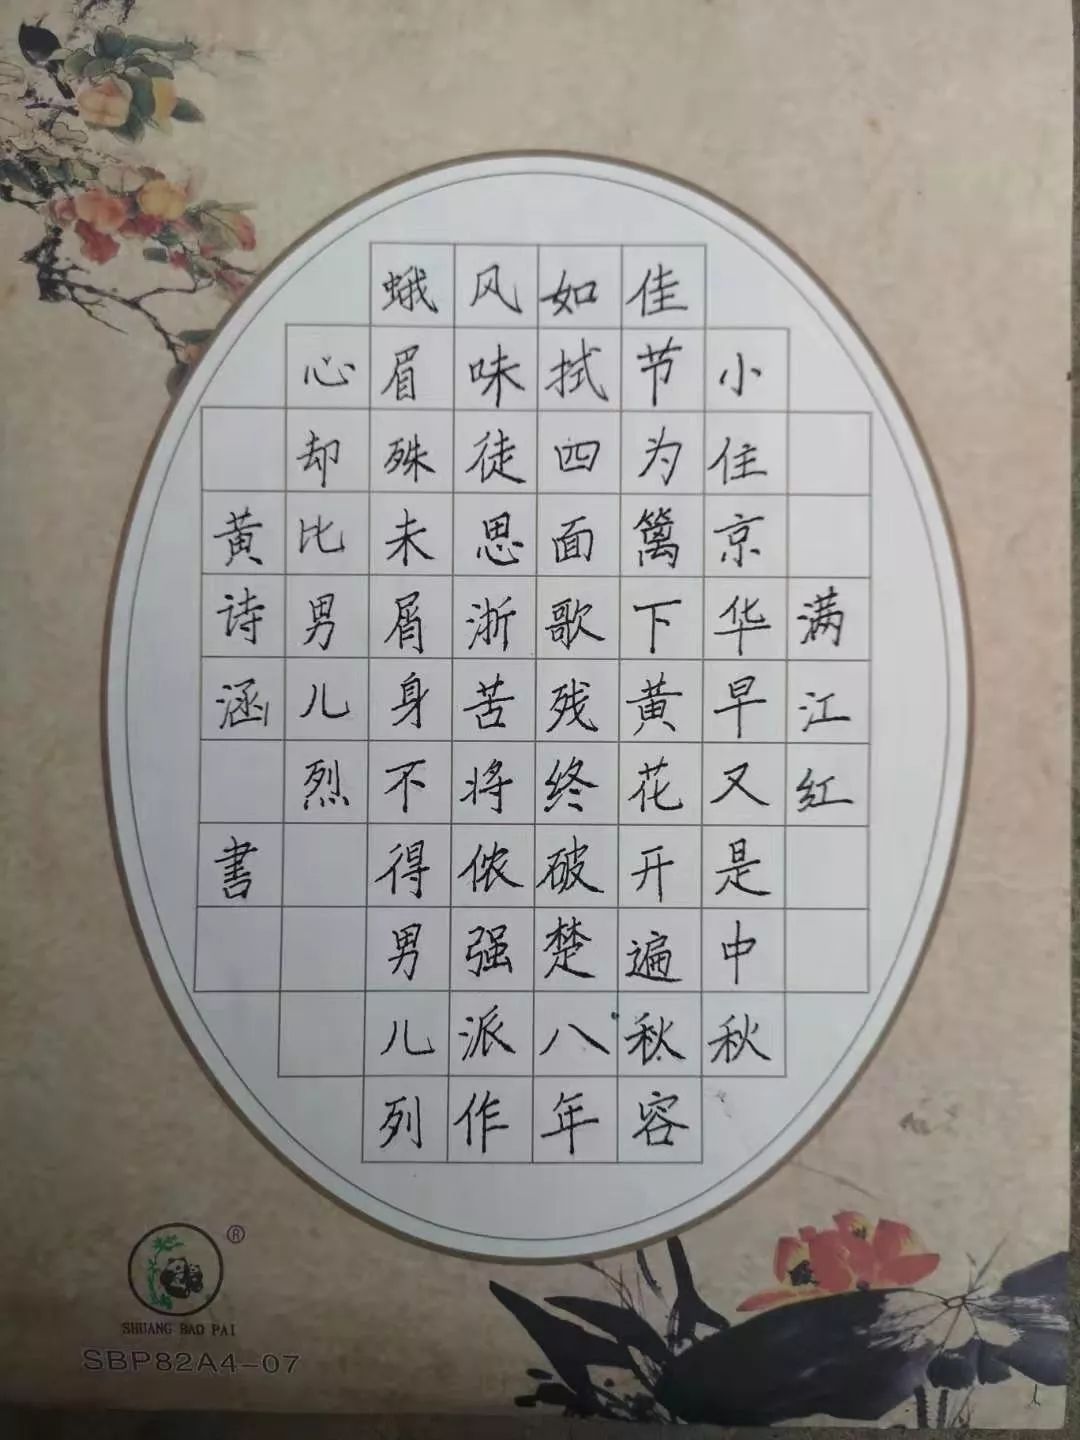 满江红
小住京华早又是中秋
佳节为篱下黄花开遍秋容
如拭四面歌残终破楚八年
风味徒思浙苦将侬强派作
蛾眉殊未屑身不得男儿列
心却比男儿烈
黄诗涵書
SHUANG BAO PAI
®
SBP82A4-07